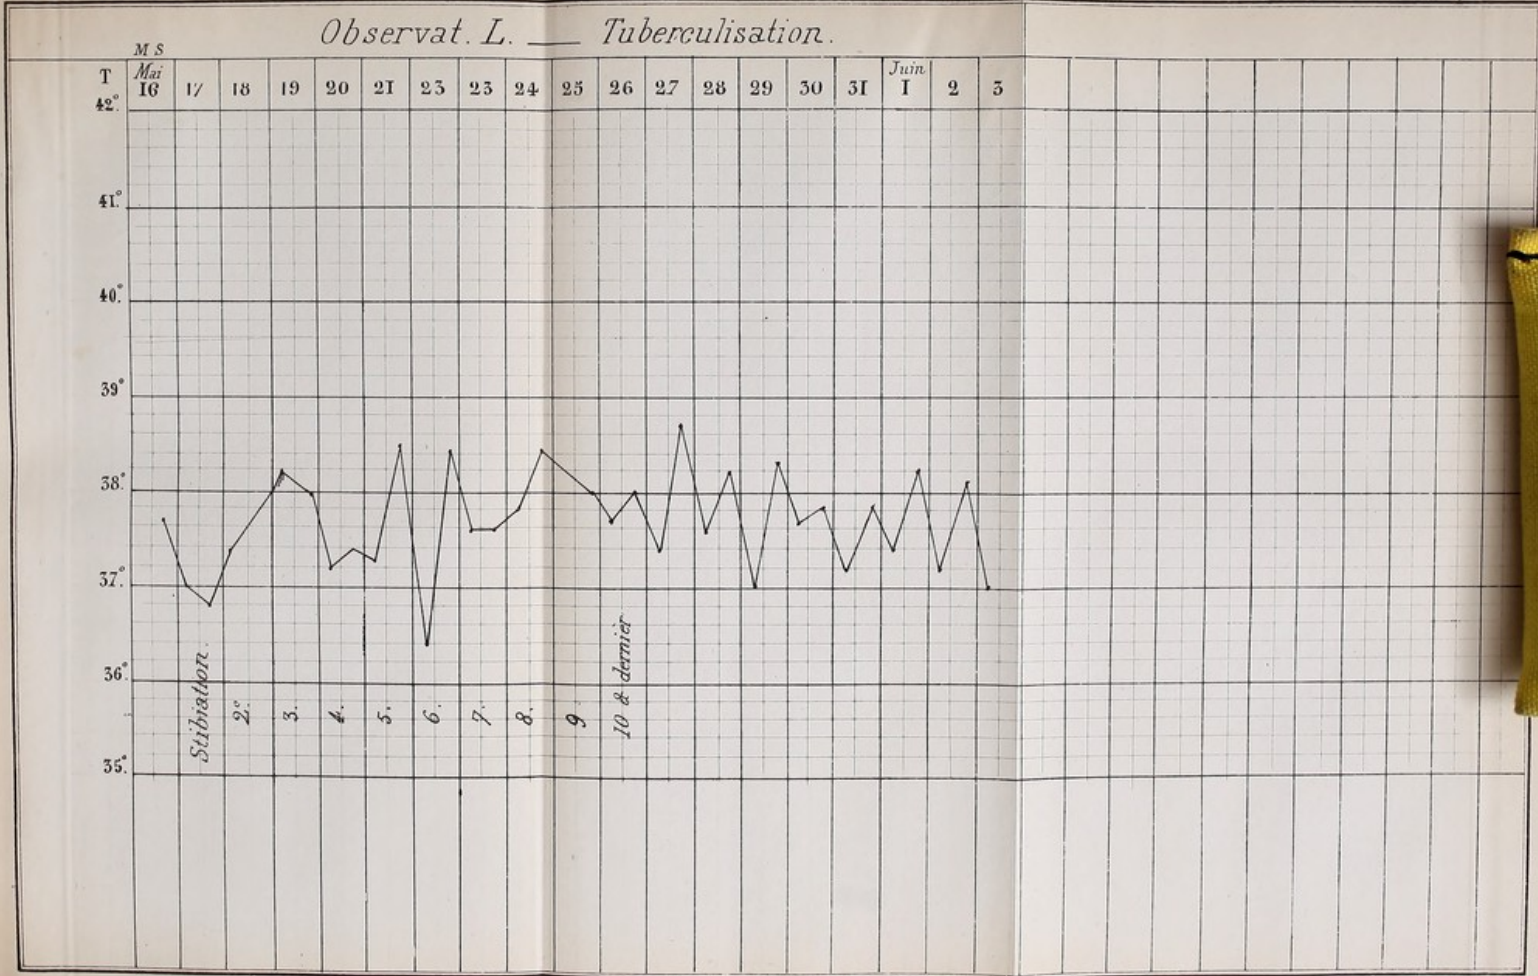 Observat. L. — Tuberculisation.
M S
T Mai Juin
16 17 18 19 20 21 23 23 24 25 26 27 28 29 30 31 1 2 3
42°
41°
40°
39°
38°
37°
36°
35°
Stibiation.
2°
3.
4.
5.
6.
7.
8.
9
10 & dernier